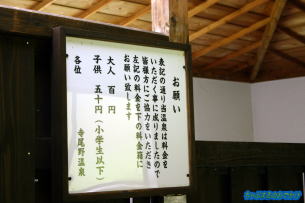 お願い
表記の通り当温泉は料金を
いただく事に成りましたので
皆様方にご協力をいただき
左記の料金を下の料金箱に
お願い致します
大人　百　円
子供　五十円（小学生以下）
各位
寺尾野温泉